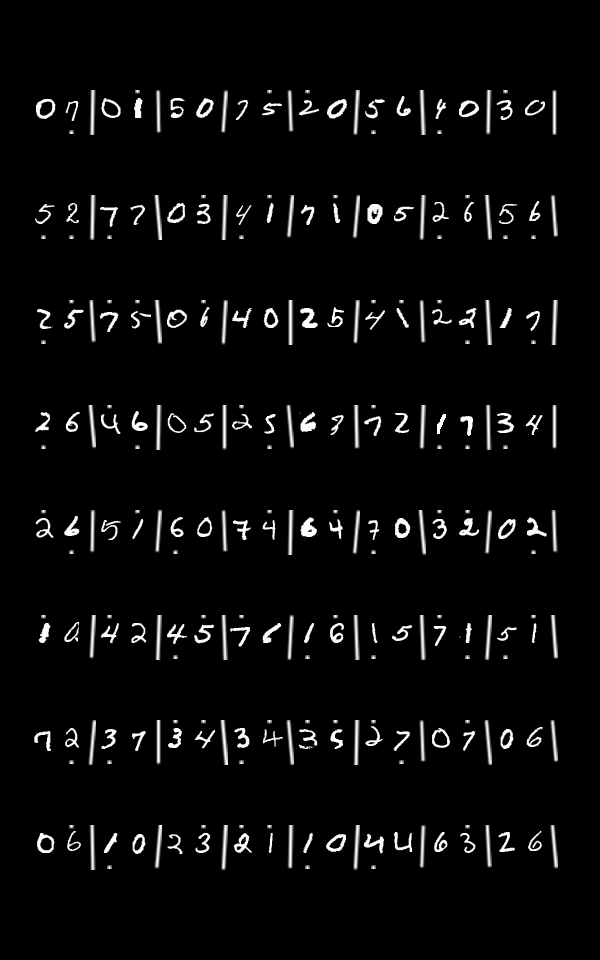 0 7 | 0 1 | 5 0 | 7 5 | 2 0 | 5 6 | 4 0 | 3 0 |
5 2 | 7 7 | 0 3 | 4 1 | 7 1 | 0 5 | 2 6 | 5 6 |
2 5 | 7 5 | 0 6 | 4 0 | 2 5 | 4 1 | 2 2 | 1 7 |
2 6 | 4 6 | 0 5 | 2 5 | 6 3 | 7 2 | 1 7 | 3 4 |
2 6 | 5 1 | 6 0 | 7 4 | 6 4 | 7 0 | 3 2 | 0 2 |
1 0 | 4 2 | 4 5 | 7 6 | 1 6 | 1 5 | 7 1 | 5 1 |
7 2 | 3 7 | 3 4 | 3 4 | 3 5 | 2 7 | 0 7 | 0 6 |
0 6 | 1 0 | 2 3 | 2 1 | 1 0 | 4 4 | 6 3 | 2 6 |